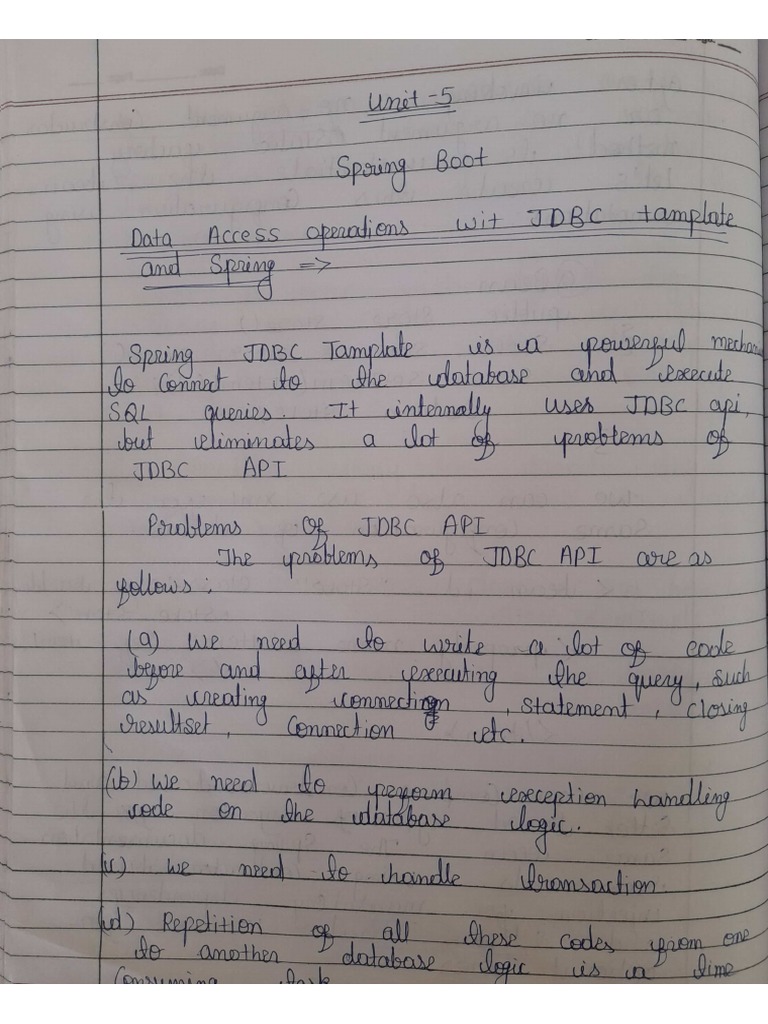 Unit-5
Spring Boot
Data Access operations wit JDBC tamplate
and Spring =>
Spring JDBC Tamplate is a powerful mechan
to connect to the database and execute
SQL queries. It internally uses JDBC api,
but eliminates a lot of problems of
JDBC API
Problems Of JDBC API
The problems of JDBC API are as
follows:
(a) we need to write a lot of code
before and after executing the query, such
as creating connection, statement, closing
resultset, connection etc.
(b) we need to perform exception handling
code on the database logic.
(c) we need to handle transaction
(d) Repetition of all these codes from one
to another database logic is a time
Consuming task